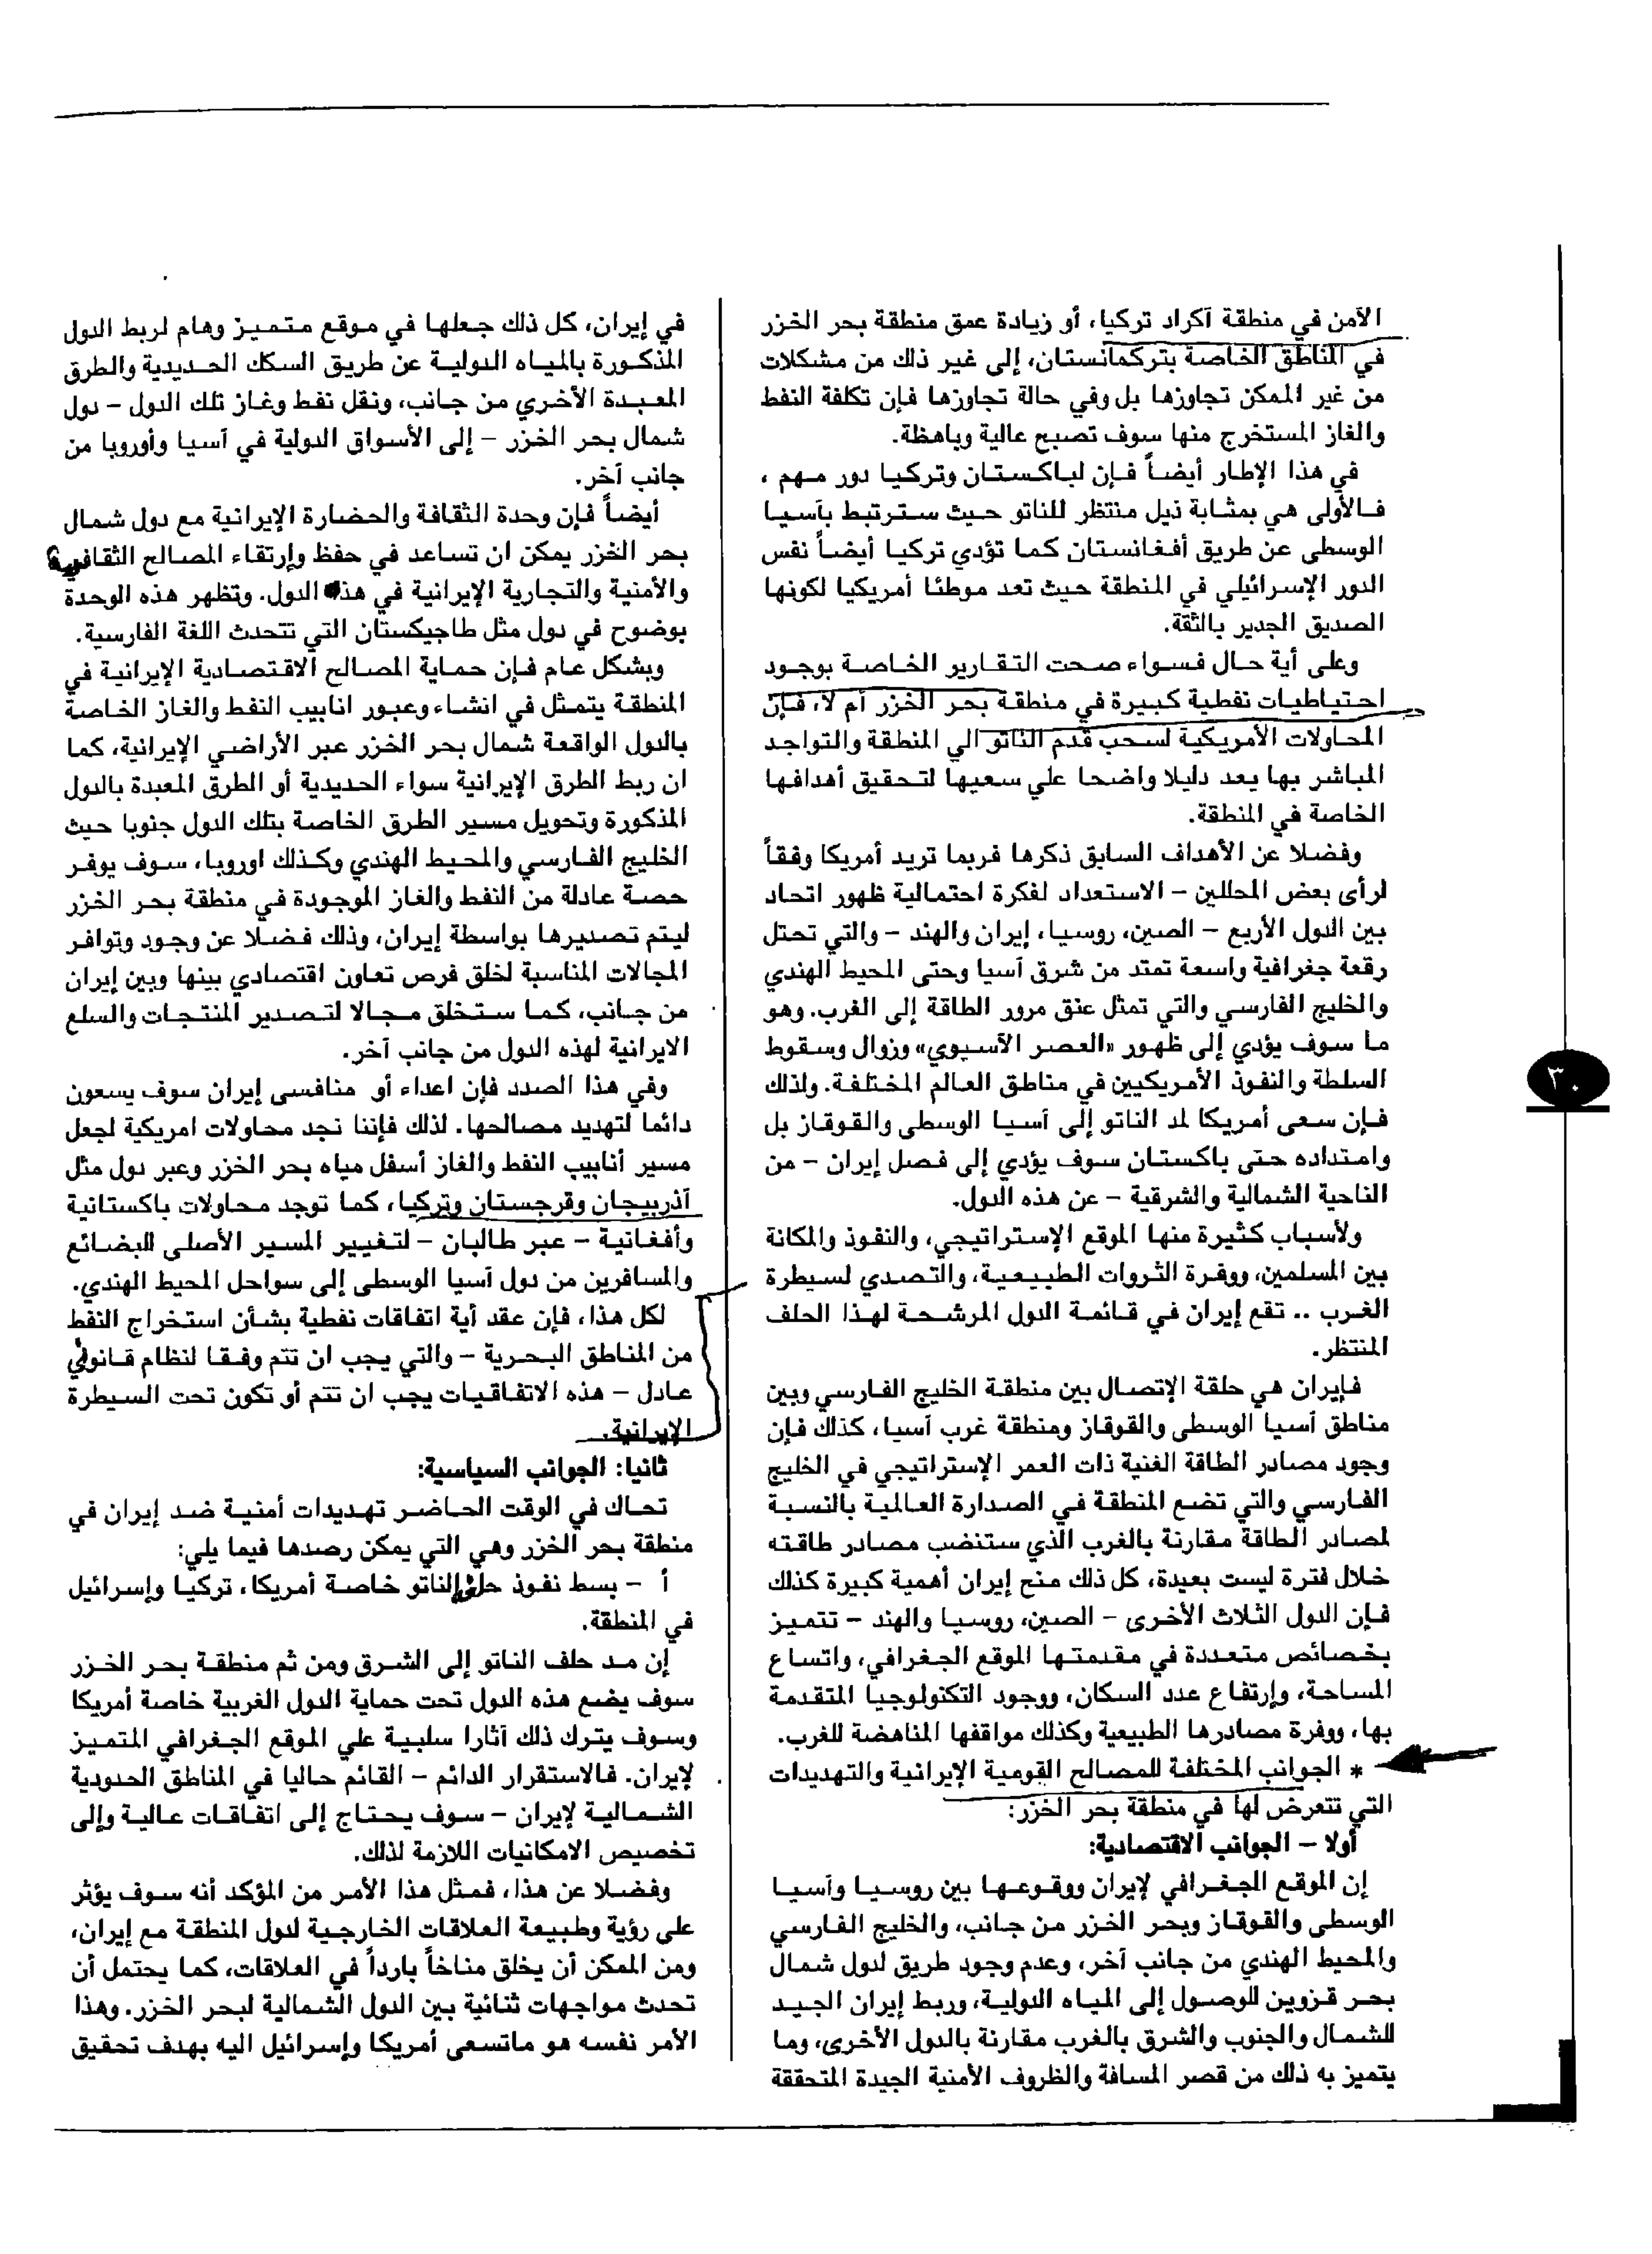 الأمن في منطقة أكراد تركيا، أو زيادة عمق منطقة بحر الخزر
في المناطق الخاصة بتركمانستان، إلى غير ذلك من مشكلات
من غير الممكن تجاوزها بل وفي حالة تجاوزها فإن تكلفة النفط
والغاز المستخرج منها سوف تصبح عالية وباهظة.
في هذا الإطار أيضاً فإن لباكستان وتركيا دور مهم ،
فالأولى هي بمثابة ذيل منتظر للناتو حيث سترتبط بآسيا
الوسطى عن طريق أفغانستان كما تؤدي تركيا أيضاً نفس
الدور الإسرائيلي في المنطقة حيث تعد موطئا أمريكيا لكونها
الصديق الجدير بالثقة.
وعلى أية حال فسواء صحت التقارير الخاصة بوجود
احتياطيات نفطية كبيرة في منطقة بحر الخزر أم لا، فإن
المحاولات الأمريكية لسحب قدم الناتو الي المنطقة والتواجد
المباشر بها يعد دليلا واضحا علي سعيها لتحقيق أهدافها
الخاصة في المنطقة.
وفضلا عن الأهداف السابق ذكرها فربما تريد أمريكا وفقاً
لرأى بعض المحللين – الاستعداد لفكرة احتمالية ظهور اتحاد
بين الدول الأربع – الصين، روسيا، إيران والهند – والتي تحتل
رقعة جغرافية واسعة تمتد من شرق آسيا وحتى المحيط الهندي
والخليج الفارسي والتي تمثل عنق مرور الطاقة إلى الغرب. وهو
ما سوف يؤدي إلى ظهور «العصر الآسيوي» وزوال وسقوط
السلطة والنفوذ الأمريكيين في مناطق العالم المختلفة. ولذلك
فإن سعى أمريكا لمد الناتو إلى آسيا الوسطى والقوقاز بل
وامتداده حتى باكستان سوف يؤدي إلى فصل إيران – من
الناحية الشمالية والشرقية – عن هذه الدول.
ولأسباب كثيرة منها الموقع الإستراتيجي، والنفوذ والمكانة
بين المسلمين، ووفرة الثروات الطبيعية، والتصدي لسيطرة
الغرب .. تقع إيران في قائمة الدول المرشحة لهذا الحلف
المنتظر.
فإيران هي حلقة الإتصال بين منطقة الخليج الفارسي وبين
مناطق آسيا الوسطى والقوقاز ومنطقة غرب آسيا، كذلك فإن
وجود مصادر الطاقة الغنية ذات العمر الإستراتيجي في الخليج
الفارسي والتي تضع المنطقة في الصدارة العالمية بالنسبة
لمصادر الطاقة مقارنة بالغرب الذي ستنضب مصادر طاقته
خلال فترة ليست بعيدة، كل ذلك منح إيران أهمية كبيرة كذلك
فإن الدول الثلاث الأخرى – الصين، روسيا والهند – تتميز
بخصائص متعددة في مقدمتها الموقع الجغرافي، واتساع
المساحة، وإرتفاع عدد السكان، ووجود التكنولوجيا المتقدمة
بها، ووفرة مصادرها الطبيعية وكذلك مواقفها المناهضة للغرب.
* الجوانب المختلفة للمصالح القومية الإيرانية والتهديدات
التي تتعرض لها في منطقة بحر الخزر:
أولا – الجوانب الاقتصادية:
إن الموقع الجغرافي لإيران ووقوعها بين روسيا وآسيا
الوسطى والقوقاز وبحر الخزر من جانب، والخليج الفارسي
والمحيط الهندي من جانب آخر، وعدم وجود طريق لدول شمال
بحر قزوين للوصول إلى المياه الدولية، وربط إيران الجيد
للشمال والجنوب والشرق بالغرب مقارنة بالدول الأخرى، وما
يتميز به ذلك من قصر المسافة والظروف الأمنية الجيدة المتحققة
في إيران، كل ذلك جعلها في موقع متميز وهام لربط الدول
المذكورة بالمياه الدولية عن طريق السكك الحديدية والطرق
المعبدة الأخري من جانب، ونقل نفط وغاز تلك الدول – دول
شمال بحر الخزر – إلى الأسواق الدولية في آسيا وأوروبا من
جانب آخر.
أيضاً فإن وحدة الثقافة والحضارة الإيرانية مع دول شمال
بحر الخزر يمكن ان تساعد في حفظ وإرتقاء المصالح الثقافية
والأمنية والتجارية الإيرانية في هذه الدول. وتظهر هذه الوحدة
بوضوح في دول مثل طاجيكستان التي تتحدث اللغة الفارسية.
وبشكل عام فإن حماية المصالح الاقتصادية الإيرانية في
المنطقة يتمثل في انشاء وعبور انابيب النفط والغاز الخاصة
بالدول الواقعة شمال بحر الخزر عبر الأراضي الإيرانية، كما
ان ربط الطرق الإيرانية سواء الحديدية أو الطرق المعبدة بالدول
المذكورة وتحويل مسير الطرق الخاصة بتلك الدول جنوبا حيث
الخليج الفارسي والمحيط الهندي وكذلك اوروبا، سوف يوفر
حصة عادلة من النفط والغاز الموجودة في منطقة بحر الخزر
ليتم تصديرها بواسطة إيران، وذلك فضلا عن وجود وتوافر
المجالات المناسبة لخلق فرص تعاون اقتصادي بينها وبين إيران
من جانب، كما ستخلق مجالا لتصدير المنتجات والسلع
الايرانية لهذه الدول من جانب آخر.
وفي هذا الصدد فإن اعداء أو منافسى إيران سوف يسعون
دائما لتهديد مصالحها. لذلك فإننا نجد محاولات امريكية لجعل
مسير أنابيب النفط والغاز أسفل مياه بحر الخزر وعبر دول مثل
آذربيجان وقرجستان وتركيا، كما توجد محاولات باكستانية
وأفغانية – عبر طالبان – لتغيير المسير الأصلى للبضائع
والمسافرين من دول آسيا الوسطى إلى سواحل المحيط الهندي.
لكل هذا، فإن عقد أية اتفاقات نفطية بشأن استخراج النفط
من المناطق البحرية – والتي يجب ان تتم وفقا لنظام قانوني
عادل – هذه الاتفاقيات يجب ان تتم أو تكون تحت السيطرة
الإيرانية.
ثانيا: الجوانب السياسية:
تحاك في الوقت الحاضر تهديدات أمنية ضد إيران في
منطقة بحر الخزر وهي التي يمكن رصدها فيما يلي:
أ – بسط نفوذ حلف الناتو خاصة أمريكا، تركيا وإسرائيل
في المنطقة.
إن مد حلف الناتو إلى الشرق ومن ثم منطقة بحر الخزر
سوف يضع هذه الدول تحت حماية الدول الغربية خاصة أمريكا
وسوف يترك ذلك آثارا سلبية علي الموقع الجغرافي المتميز
لإيران. فالاستقرار الدائم – القائم حاليا في المناطق الحدودية
الشمالية لإيران – سوف يحتاج إلى اتفاقات عالية وإلى
تخصيص الامكانيات اللازمة لذلك.
وفضلا عن هذا، فمثل هذا الأمر من المؤكد أنه سوف يؤثر
على رؤية وطبيعة العلاقات الخارجية لدول المنطقة مع إيران،
ومن الممكن أن يخلق مناخاً بارداً في العلاقات، كما يحتمل أن
تحدث مواجهات ثنائية بين الدول الشمالية لبحر الخزر. وهذا
الأمر نفسه هو ماتسعى أمريكا وإسرائيل اليه بهدف تحقيق
٣٠